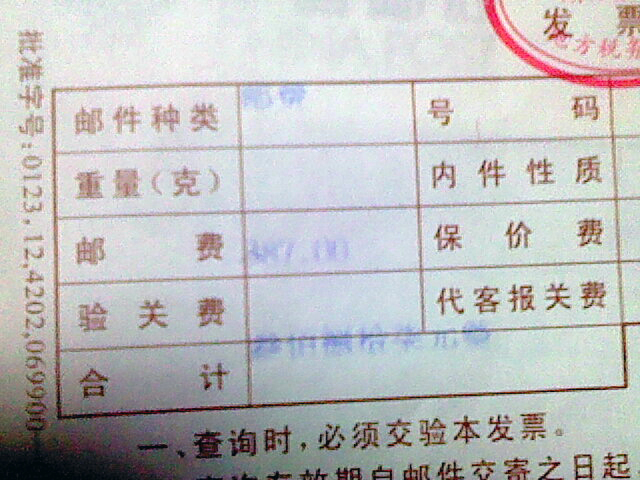 发 票
地方税务
批准字号:0123,12,4202,069900
邮件种类
号 码
重量(克)
内件性质
邮 费
387.00
保 价 费
验 关 费
代客报关费
合 计
一、查询时,必须交验本发票。
查询有效期自邮件交寄之日起